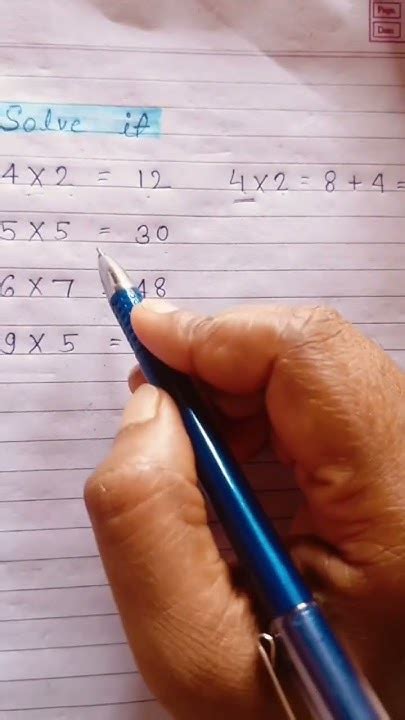 Page.
Date.
Solve it
4 × 2 = 12 4 × 2 = 8 + 4 =
5 × 5 = 30
6 × 7 48
9 × 5 =